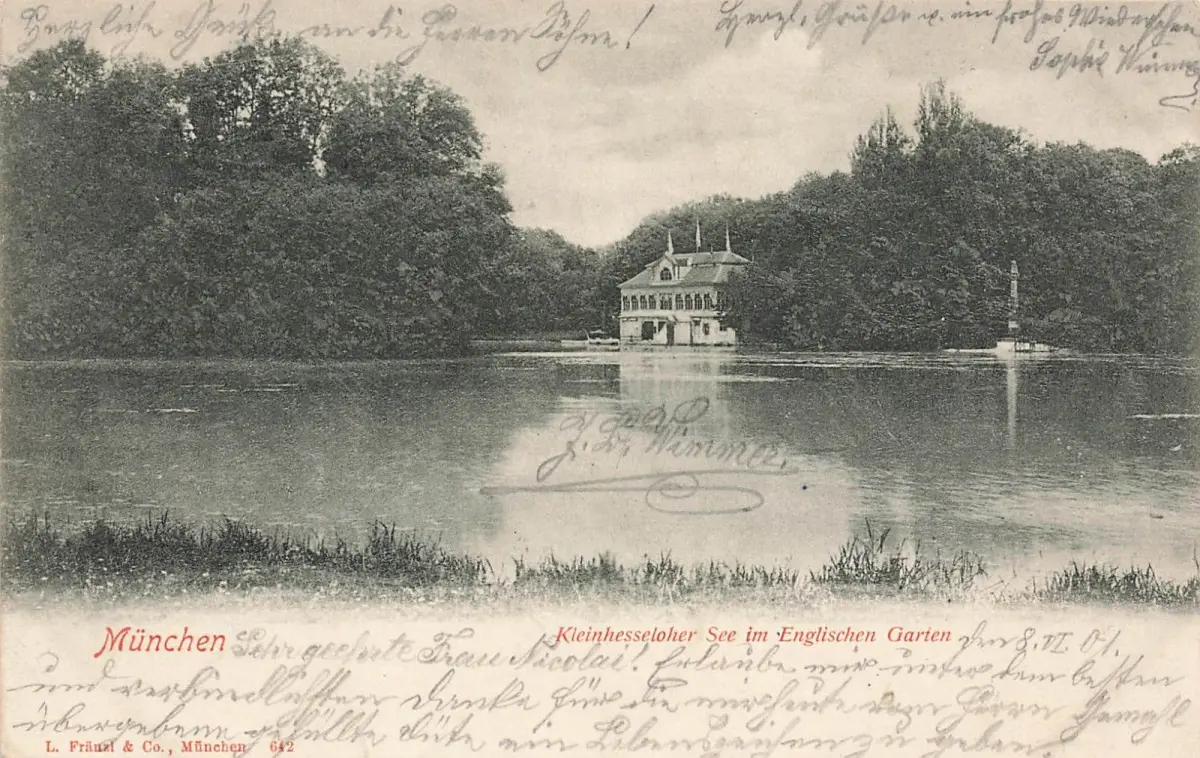 Herzliche Grüße an die Herren Söhne!
Herzl. Grüße u. ein frohes Wiedersehen
Sophie Wimmer
Wimmer.
München
Kleinhesseloher See im Englischen Garten
den 8. VI. 01.
Sehr geehrte Frau Nicolai! Erlaube mir unter dem besten
und verbindlichsten Danke für die mir heute vom Herrn Gemahl
übergebene gefüllte Düte ein Lebenszeichen zu geben.
L. Fränzl & Co., München 642